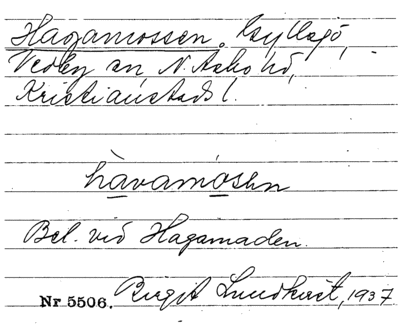 Hagamossen, Gyllsjö,
Vedby sn, N. Åsbo hd,
Kristianstads l.
hàvamòsen
Bel. vid Hagamaden.
Nr 5506. Birgit Lundkvist, 1937